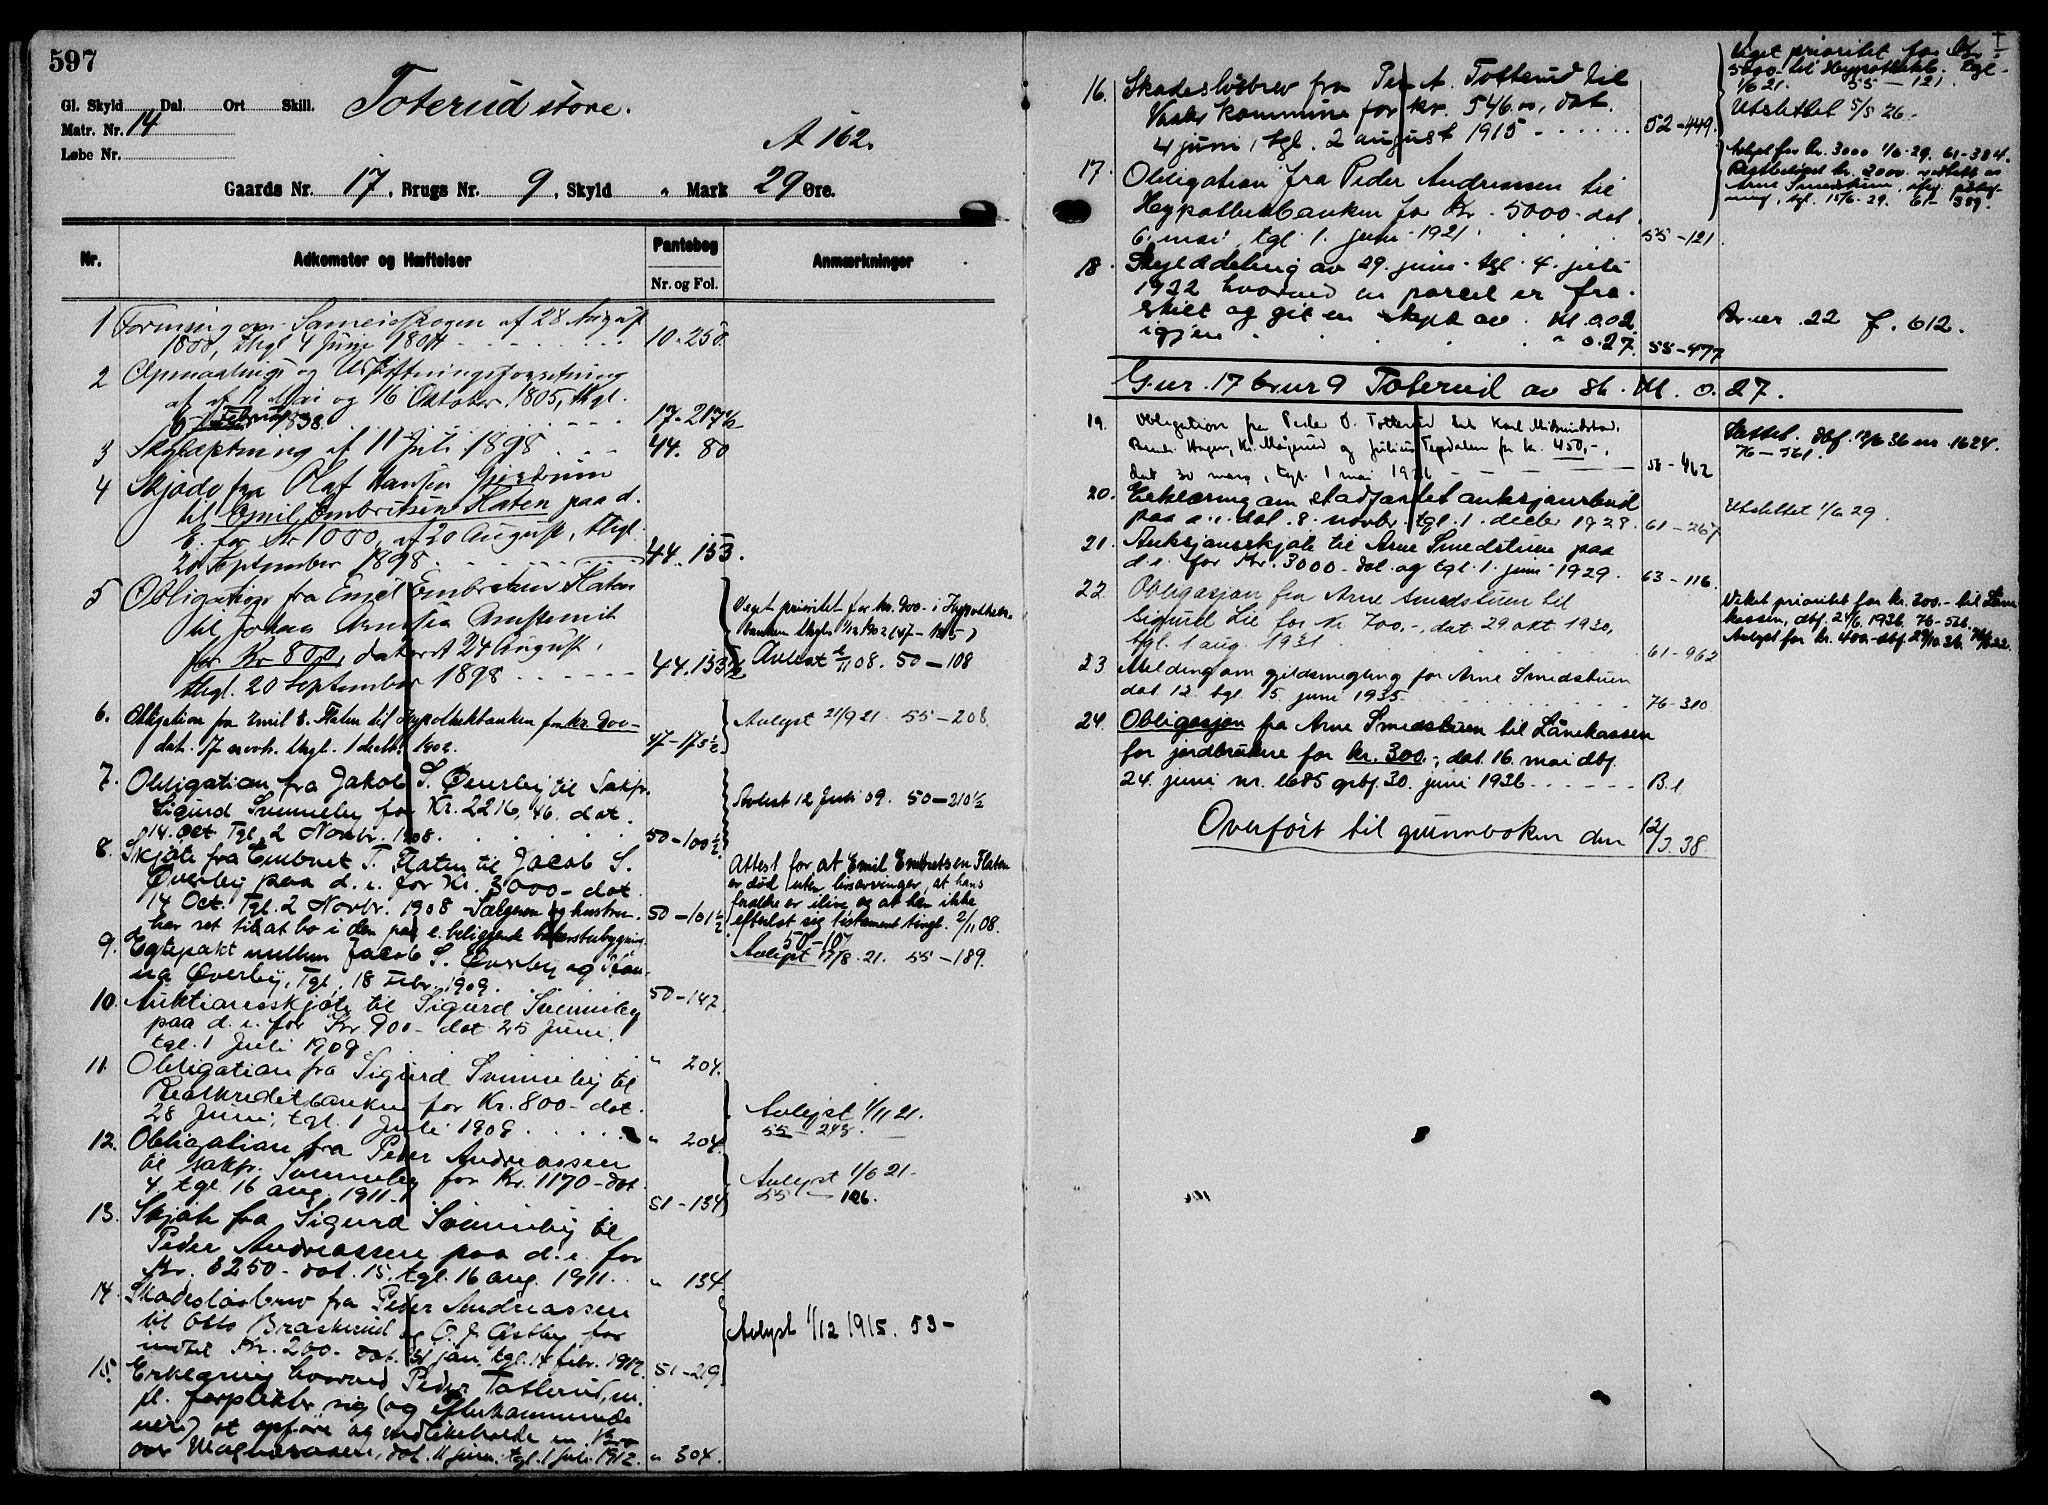 597
Gl. Skyld Dal. Ort Skill.
Toterud store.
Matr. Nr. 14
Løbe Nr.
A 162.
Gaards Nr. 17, Brugs Nr. 9, Skyld " Mark 29 Øre.
Nr. Adkomster og Hæftelser Pantebog Nr. og Fol. Anmærkninger
1 Forening om Sameieskogen af 28 August
1800, thgl. 4 Juni 1801 10-250.
2 Opmaalings og Udskiftningsforretning
af 11 Mai og 16 Oktober 1805, thgl.
Februar 1838 17-217½
3 Skyldsætning af 11 Juli 1898 44. 80
4 Skjøde fra Olaf Hansen Gjerdrum
til Emil Embretsen Flaten paa d.
E. for Kr 1000, af 20 August, thgl.
20 September 1898 44. 153.
5 Obligation fra Emil Embretsen Flaten
til Johan
for Kr 800, dateret 24 August,
thgl. 20 September 1898 44.153½
Veget prioritet for kr. 900- i Hypothek-
banken thgl. 1/12 1902 (47-175)
Avlest 2/11 08. 50-108
6. Obligation fra Emil E. Flaten til Hypothekbanken for kr. 900-
dat. 17 novbr. thgl. 1 decbr. 1902. 47-175½
Avlyst 21/9 21. 55-208.
7. Obligation fra Jakob S. Øverby til Sakfr.
Sigurd Svenneby for Kr. 2216,46. dat.
14. Oct. Tgl. 2 Novbr. 1908. 50-100½
Avlest 12 Juli 09. 50-210½
8. Skjøte fra Embret T. Flaten til Jacob S.
Øverby paa d. e. for Kr. 3000- dat.
14 Oct. Tgl. 2 Novbr. 1908 - Sælgeren og hustru
har ret til at bo i den paa e. beliggende bygning. 50-101½
Attest for at Emil Embretsen Flaten
er død uten livsarvinger, at hans
forældre er ilive og at han ikke
efterlot sig testament tingl. 2/11 08.
50-107
9. Egtepakt mellem Jacob S. Øverby og
Øverby, Tgl. 18 Febr. 1909. 50-147
Avlyst 17/8 21. 55-189.
10. Auktionsskjøte til Sigurd Svenneby
paa d. e. for Kr. 900- dat 25 Juni.
tgl. 1 Juli 1909 " 204.
11. Obligation fra Sigurd Svenneby til
Realkreditbanken for Kr. 800- dat.
28 Juni, tgl. 1 Juli 1909 " 204.
Avlyst 1/11 21.
55-243.
12. Obligation fra Peder Andreassen
til sakfr. Svenneby for Kr. 1170- dat.
4. tgl. 16 aug. 1911. 51-134
Avlyst 1/6 21.
55-126.
13. Skjøte fra Sigurd Svenneby til
Peder Andreassen paa d. e. for
Kr. 3250- dat. 15. tgl. 16 aug. 1911. " 134.
14. Skadesløsbrev fra Peder Andreassen
til Otto Braskerud og O. J. Østby for
indtil Kr. 200- dat. 31 jan. tgl. 14 febr. 1912. 51-219
Avlyst 1/12 1915. 53-
15. Erklæring hvorved Peder Totterud m.
fl. forplikter sig (og efterkommende
eiere) at opføre og vedlikeholde en bro
over, dat. 11 juni, tgl. 1 juli 1912. " 304.
16. Skadesløsbrev fra Peder A. Totterud til
Vaaler kommune for kr. 546.00, dat.
4 juni, tgl. 2 august 1915 52-449.
Veget prioritet for
5000- til Hypothekb. Tgl.
1/6 21. 55-121.
Utslettet 5/5 26.
17. Obligation fra Peder Andreassen til
Hypothekbanken for Kr. 5000- dat.
6. mai, tgl. 1. juni 1921. 55-121.
Avlyst for kr. 3000 1/6-29. 61-384.
Restbeløpet kr. 2000
Arne Smedstuen,
tgl. 15/6-29. 61-389.
18. Skylddeling av 29. juni tgl. 4. juli
1922 hvorved en parcel er fra-
skilt og git en skyld av M. 0.02
igjen " 0.27. 55-477
Br. nr. 22 f. 612.
Gnr. 17 brnr 9 Toterud av sk. M. 0.27.
19. Obligation fra Peder O. Totterud til Karl Midtsundstad,
Hagen, Kr. Mågerud og Julius Teppdalen for kr. 450,-.
dat. 30 mars, tgl. 1 mai 1926 58-462
Slettet. dbf. 12/6 36 nr. 1624.
76-561.
20. Erklæring om stadfæstet auksjonsbud
paa d. e. dat. 8. novbr. tgl. 1. decbr 1928. 61-267
Utslettet 1/6 29.
21. Auksjonsskjøte til Arne Smedstuen paa
d. e. for Kr. 3000- dat. og tgl. 1. juni 1929. 63-116.
22. Obligasjon fra Arne Smedstuen til
Sigurd Lie for kr 700.-, dat. 29. okt 1930,
tgl. 1 aug. 1931 61-962
Veket prioritet for kr. 300.- til Låne-
kassen, dbf. 24/6 1936. 76-566.
Avlyst for kr. 400.- dbf.
23 Melding om gjeldsmegling for Arne Smedstuen
dat. 12. tgl. 15. juni 1935. 76-310
24. Obligasjon fra Arne Smedstuen til Lånekassen
for jordbrukere for kr. 300.-, dat. 16. mai dbf.
24. juni nr. 1685 grbf. 30. juni 1936. B.1
Overført til grunnboken den 12/3. 38.